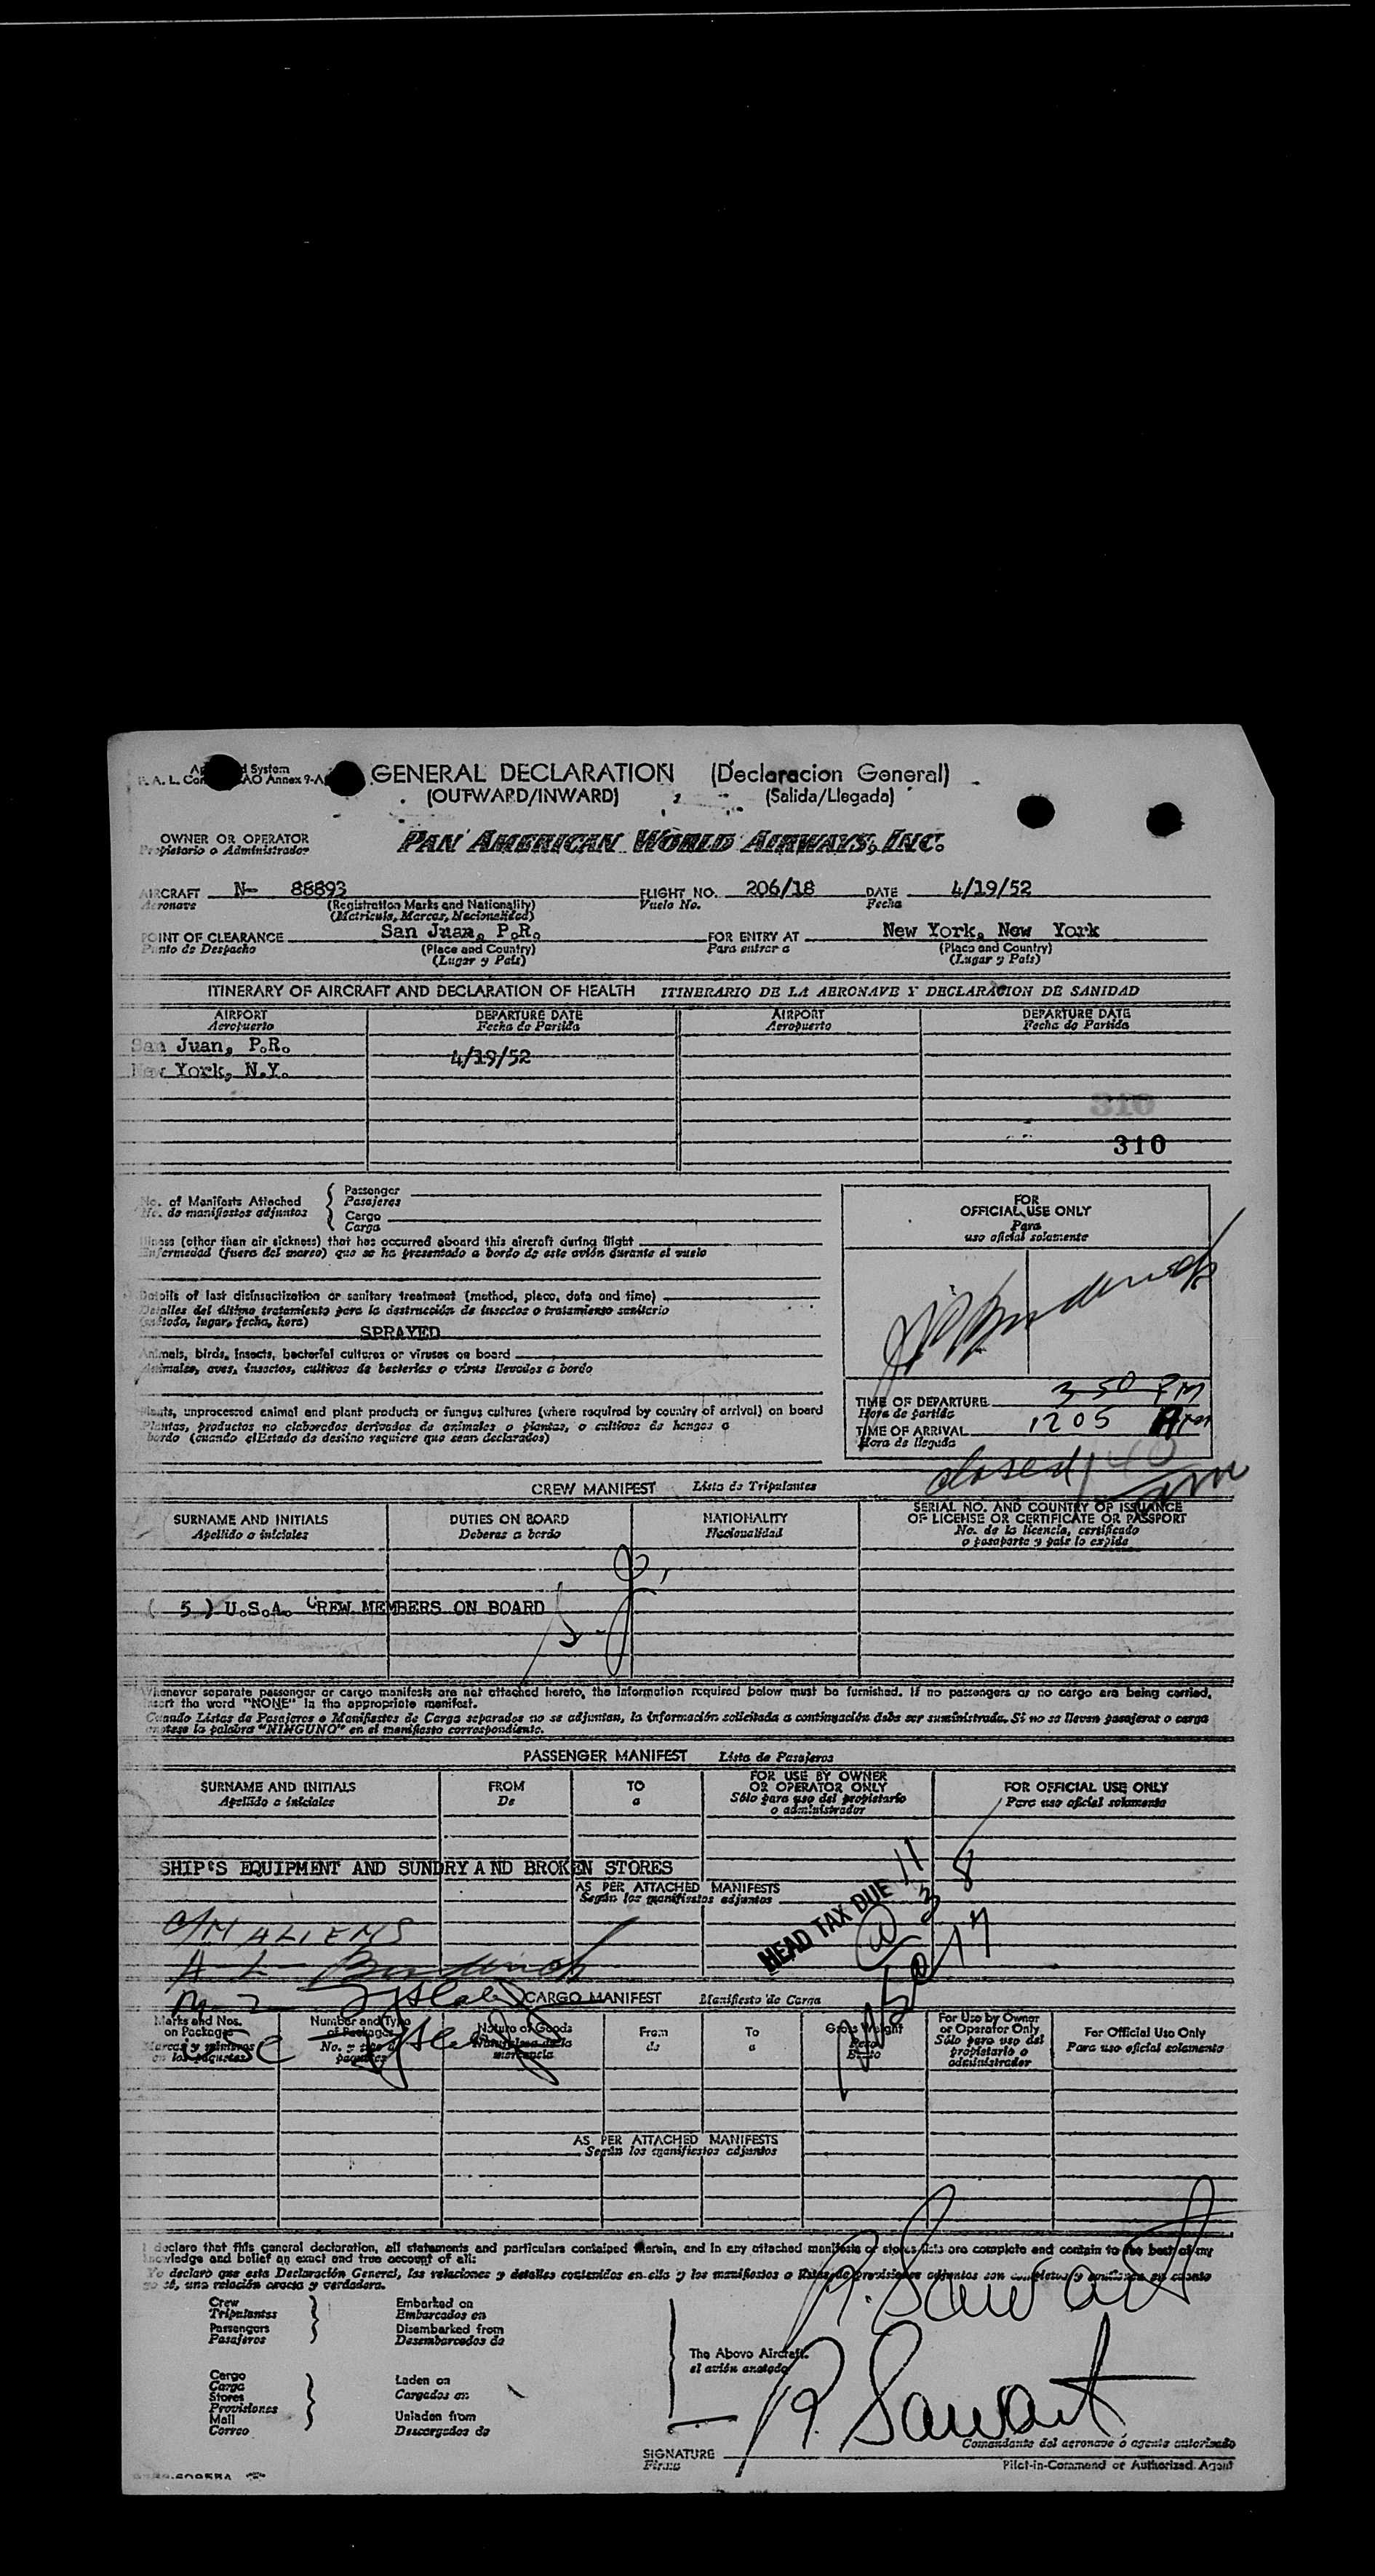 GENERAL DECLARATION (Declaracion General)
(OUTWARD/INWARD) (Salida/Llegada)
OWNER OR OPERATOR
Propietario o Administrador
PAN AMERICAN WORLD AIRWAYS, INC.
AIRCRAFT N- 88893 FLIGHT NO. 206/18 DATE 4/19/52
Aeronave (Registration Marks and Nationality) Vuelo No. Fecha
(Matricula, Marcas, Nacionalidad)
POINT OF CLEARANCE San Juan, P.R. FOR ENTRY AT New York, New York
Punto de Despacho (Place and Country) Para entrar a (Place and Country)
(Lugar y País) (Lugar y País)
ITINERARY OF AIRCRAFT AND DECLARATION OF HEALTH ITINERARIO DE LA AERONAVE Y DECLARACION DE SANIDAD
AIRPORT DEPARTURE DATE AIRPORT DEPARTURE DATE
Aeropuerto Fecha de Partida Aeropuerto Fecha de Partida
San Juan, P.R. 4/19/52
New York, N.Y.
310
310
No. of Manifests Attached Passenger
No. de manifiestos adjuntos Pasajeros
Cargo
Carga
FOR
OFFICIAL USE ONLY
Para
uso oficial solamente
Illness (other than air sickness) that has occurred aboard this aircraft during flight
Enfermedad (fuera del mareo) que se ha presentado a bordo de este avión durante el vuelo
Details of last disinsectization or sanitary treatment (method, place, date and time)
Detalles del último tratamiento para la destrucción de insectos o tratamiento sanitario
(método, lugar, fecha, hora)
SPRAYED
Animals, birds, insects, bacterial cultures or viruses on board
Animales, aves, insectos, cultivos de bacterias o virus llevados a bordo
Plants, unprocessed animal and plant products or fungus cultures (where required by country of arrival) on board
Plantas, productos no elaborados derivados de animales o plantas, o cultivos de hongos a
bordo (cuando el Estado de destino requiere que sean declarados)
TIME OF DEPARTURE 3 50 PM
Hora de partida
TIME OF ARRIVAL 12 05 AM
Hora de llegada
closed 1 40 am
CREW MANIFEST Lista de Tripulantes
SURNAME AND INITIALS DUTIES ON BOARD NATIONALITY SERIAL NO. AND COUNTRY OF ISSUANCE
Apellido e iniciales Deberes a bordo Nacionalidad OF LICENSE OR CERTIFICATE OR PASSPORT
No. de la licencia, certificado
o pasaporte y país lo expide
( 5 ) U.S.A. CREW MEMBERS ON BOARD
Whenever separate passenger or cargo manifests are not attached hereto, the information required below must be furnished. If no passengers or no cargo are being carried,
insert the word "NONE" in the appropriate manifest.
Cuando Listas de Pasajeros o Manifiestos de Carga separados no se adjuntan, la información solicitada a continuación debe ser suministrada. Si no se llevan pasajeros o carga
anótese la palabra "NINGUNO" en el manifiesto correspondiente.
PASSENGER MANIFEST Lista de Pasajeros
SURNAME AND INITIALS FROM TO FOR USE BY OWNER FOR OFFICIAL USE ONLY
Apellido e iniciales De a OR OPERATOR ONLY Para uso oficial solamente
Sólo para uso del propietario
o administrador
SHIP'S EQUIPMENT AND SUNDRY AND BROKEN STORES
AS PER ATTACHED MANIFESTS
Según los manifiestos adjuntos
HEAD TAX DUE
ALIENS
CARGO MANIFEST Manifiesto de Carga
Marks and Nos. Number and Type Nature of Goods From To Gross Weight For Use by Owner For Official Use Only
on Packages of Packages Naturaleza de la de a Peso or Operator Only Para uso oficial solamente
Marcas y números No. y tipo de mercancía Bruto Sólo para uso del
en los paquetes paquetes propietario o
administrador
AS PER ATTACHED MANIFESTS
Según los manifiestos adjuntos
I declare that this general declaration, all statements and particulars contained therein, and in any attached manifests or stores lists are complete and contain to the best of my
knowledge and belief an exact and true account of all:
Yo declaro que esta Declaración General, las relaciones y detalles contenidos en ella y los manifiestos o listas de provisiones adjuntos son completos y contienen en cuanto
yo sé, una relación exacta y verdadera.
Crew Embarked on
Tripulantes Embarcados en
Passengers Disembarked from
Pasajeros Desembarcados de
The Above Aircraft.
el avión anotado
Cargo Laden on
Carga Cargados en
Stores
Provisiones
Mail Unladen from
Correo Descargados de
SIGNATURE
Firma
Comandante del aeronave ó agente autorizado
Pilot-in-Command or Authorized Agent